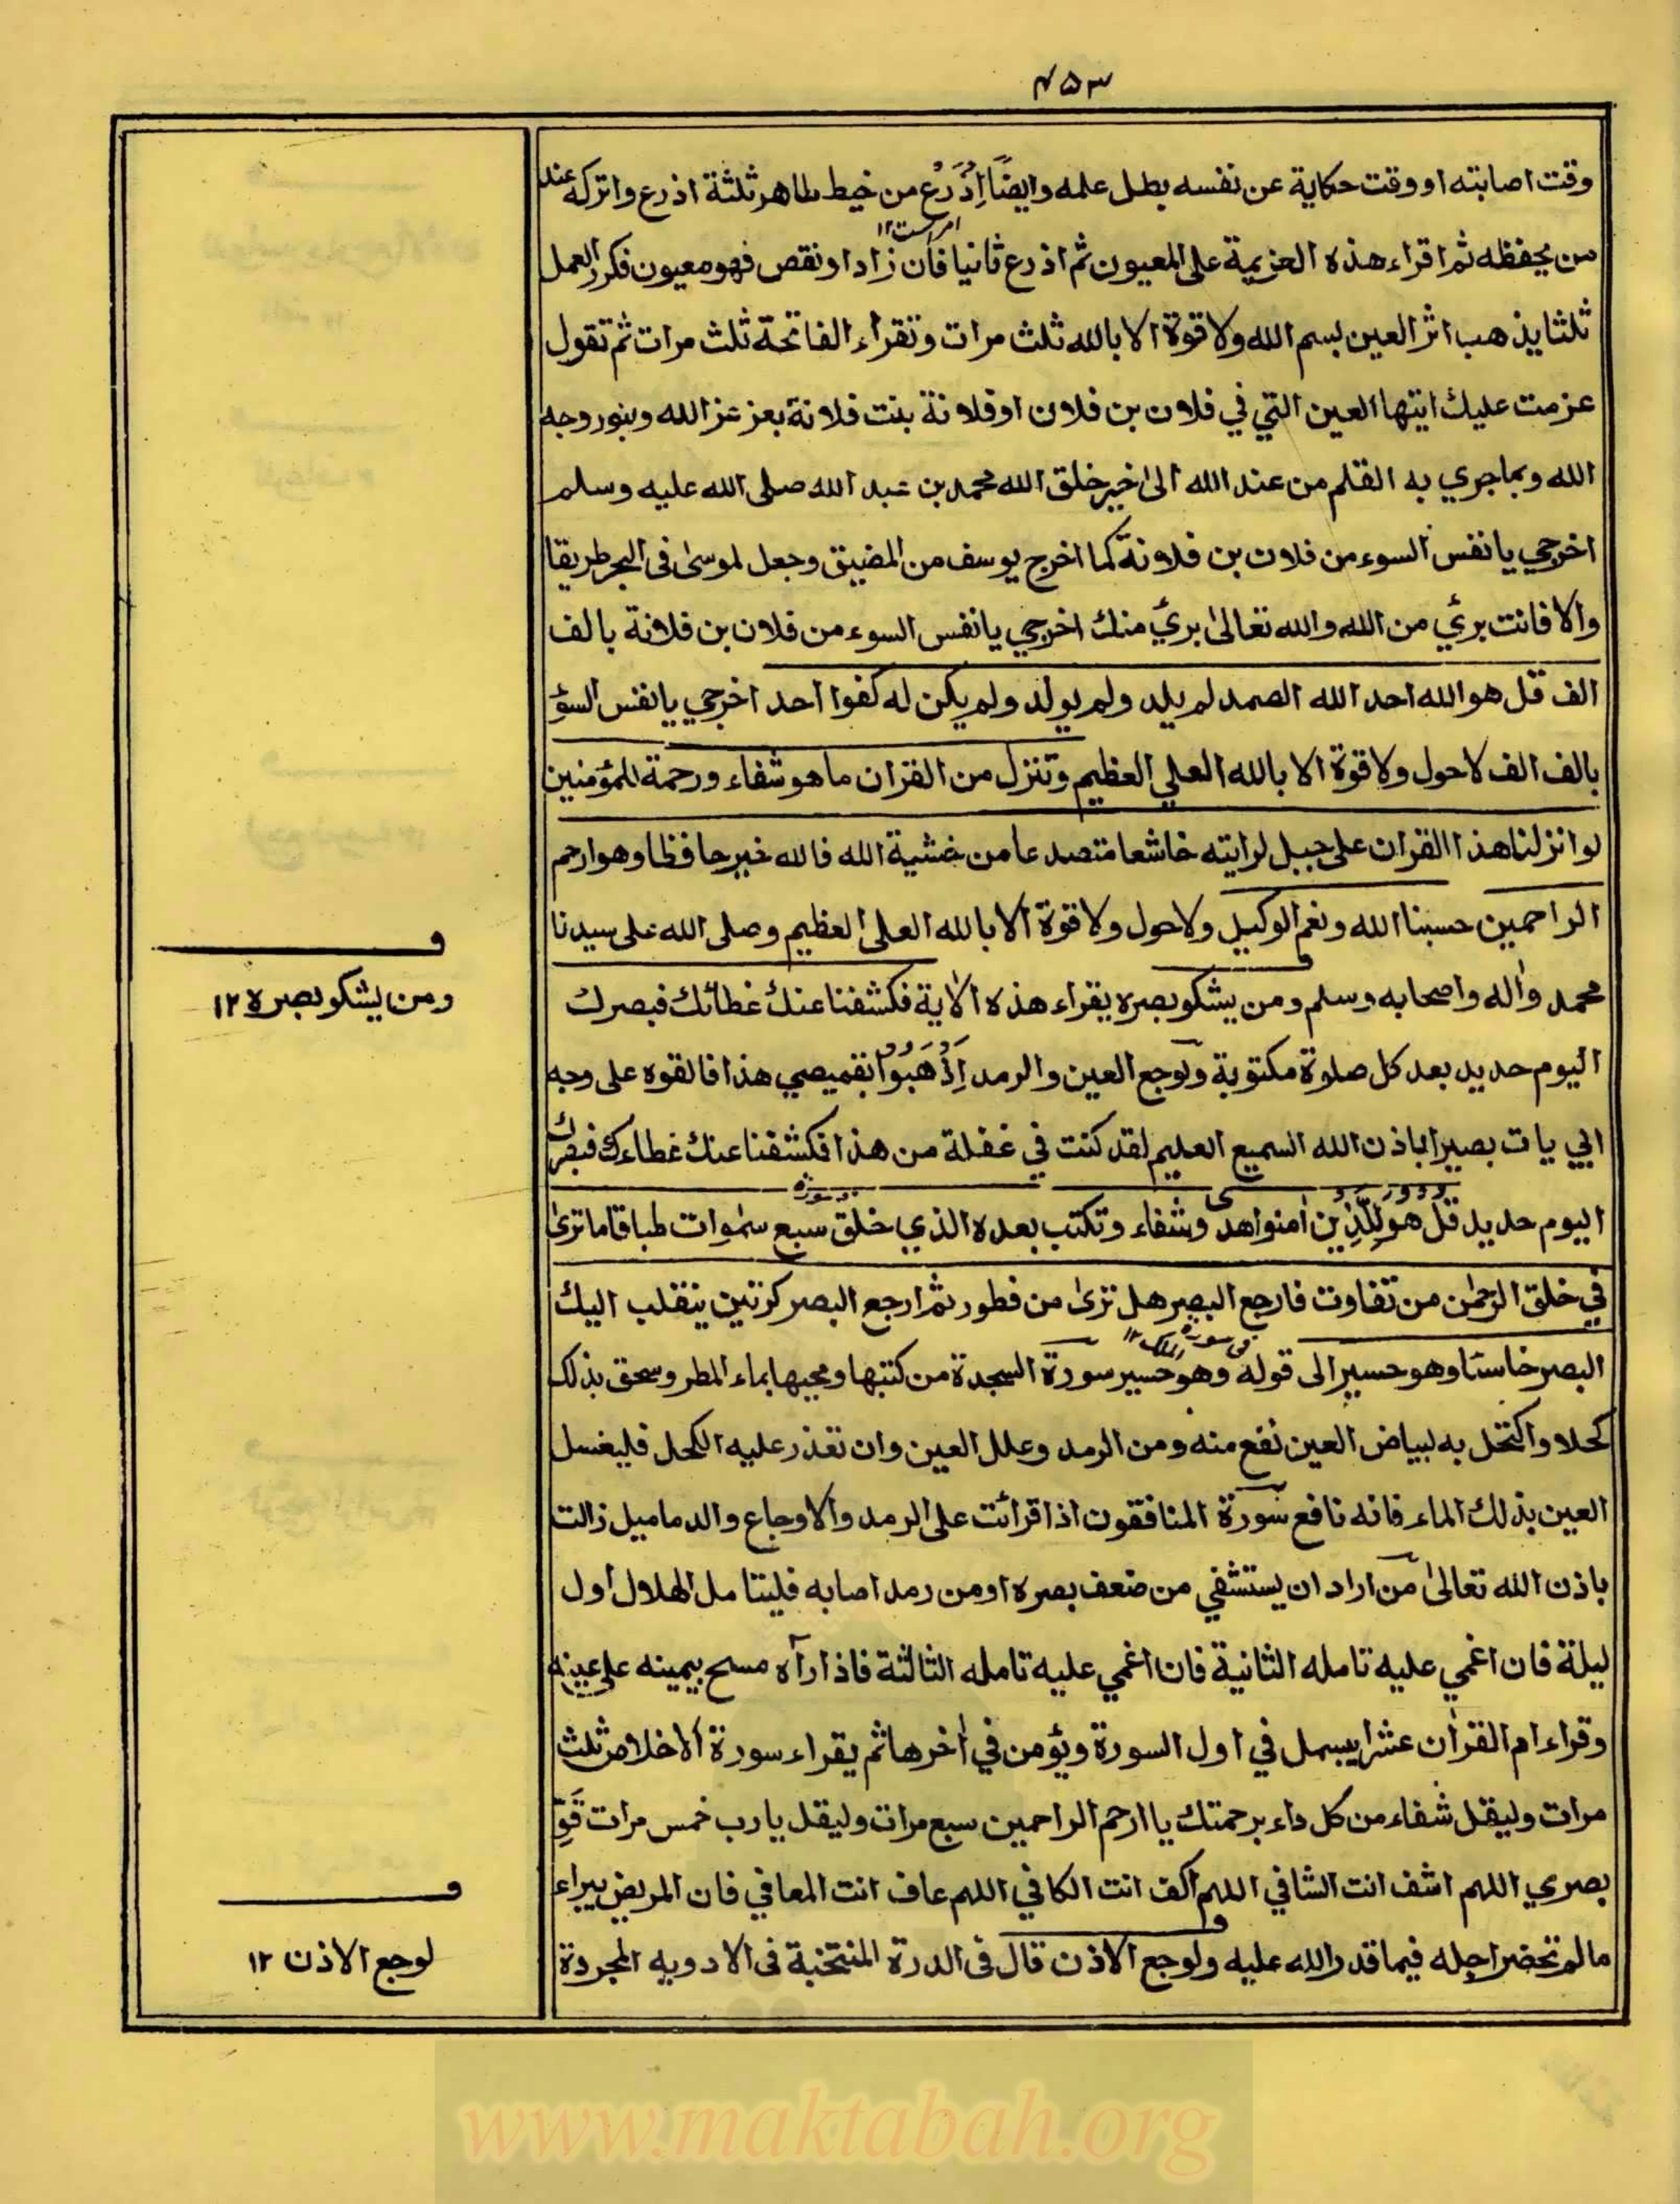 ۴۵۳
وقت اصابته او وقت حكاية عن نفسه بطل علمه وايضًا اِذْرَعْ من خيط طاهر ثلثة اذرع واتركه عند
امر است ۱۲
من يحفظه ثم اقراء هذه العزيمة على المعيون ثم اذرع ثانيا فان زاد او نقص فهو معيون فكرر العمل
ثلثا يذهب اثر العين بسم الله ولا قوة الا بالله ثلث مرات وتقراء الفاتحة ثلث مرات ثم تقول
عزمت عليك ايتها العين التي في فلان بن فلان او فلانة بنت فلانة بعز عز الله وبنور وجه
الله وبما جري به القلم من عند الله الى خير خلق الله محمد بن عبد الله صلى الله عليه وسلم
اخرجي يا نفس السوء من فلان بن فلانة كما اخرج يوسف من المضيق وجعل لموسى فى البحر طريقا
والا فانت برئ من الله والله تعالى برئ منك اخرجي يا نفس السوء من فلان بن فلانة بالف
الف قل هو الله احد الله الصمد لم يلد ولم يولد ولم يكن له كفوا احد اخرجي يا نفس السؤ
بالف الف لا حول ولا قوة الا بالله العلي العظيم وتنزل من القران ما هو شفاء ورحمة للمؤمنين
لو انزلنا هذا القران على جبل لرايته خاشعا متصدعا من خشية الله فالله خير حافظا وهو ارحم
الراحمين حسبنا الله ونعم الوكيل ولا حول ولا قوة الا بالله العلى العظيم وصلى الله على سيدنا
محمد واٰله واصحابه وسلم ومن يشكو بصره يقراء هذه الاٰية فكشفنا عنك غطائك فبصرك
اليوم حديد بعد كل صلوة مكتوبة ولوجع العين والرمد اِذْهَبُوْا بقميصي هذا فالقوه على وجه
ابي يات بصيرا باذن الله السميع العليم لقد كنت في غفلة من هذا فكشفنا عنك غطاءك فبصرك
اليوم حديد قُلْ هُوَ لِلَّذِين اٰمنوا هدى وشفاء وتكتب بعده الذي خلق سبع سمٰوات طباقا ما ترىٰ
في خلق الرحمٰن من تفاوت فارجع البصر هل ترىٰ من فطور ثم ارجع البصر كرتين ينقلب اليك
فى سورة الملك ۱۲
البصر خاسئا وهو حسير الى قوله وهو حسير سورة السجدة من كتبها ومحيها بماء المطر وسحق بذلك
كحلا واكتحل به لبياض العين نفع منه ومن الرمد وعلل العين وان تعذر عليه الكحل فليغسل
العين بذلك الماء فانه نافع سورة المنافقون اذا قرائت على الرمد والاوجاع والدماميل زالت
باذن الله تعالىٰ من اراد ان يستشفي من ضعف بصره او من رمد اصابه فليتامل الهلال اول
ليلة فان اغمي عليه تامله الثانية فان اغمي عليه تامله الثالثة فاذا راٰه مسح بيمينه على عينه
وقراء ام القراٰن عشرا يبسمل في اول السورة ويؤمن في اٰخرها ثم يقراء سورة الاخلاص ثلث
مرات وليقل شفاء من كل داء برحمتك يا ارحم الراحمين سبع مرات وليقل يا رب خمس مرات قَوِّ
بصري اللهم اشف انت الشافي اللهم اكف انت الكافي اللهم عاف انت المعافي فان المريض يبراء
ما لم تحضر اجله فيما قدر الله عليه ولوجع الاذن قال فى الدرة المنتخبة فى الادويه المجردة
ف
ومن يشكو بصره ۱۲
ف
لوجع الاذن ۱۲
www.maktabah.org